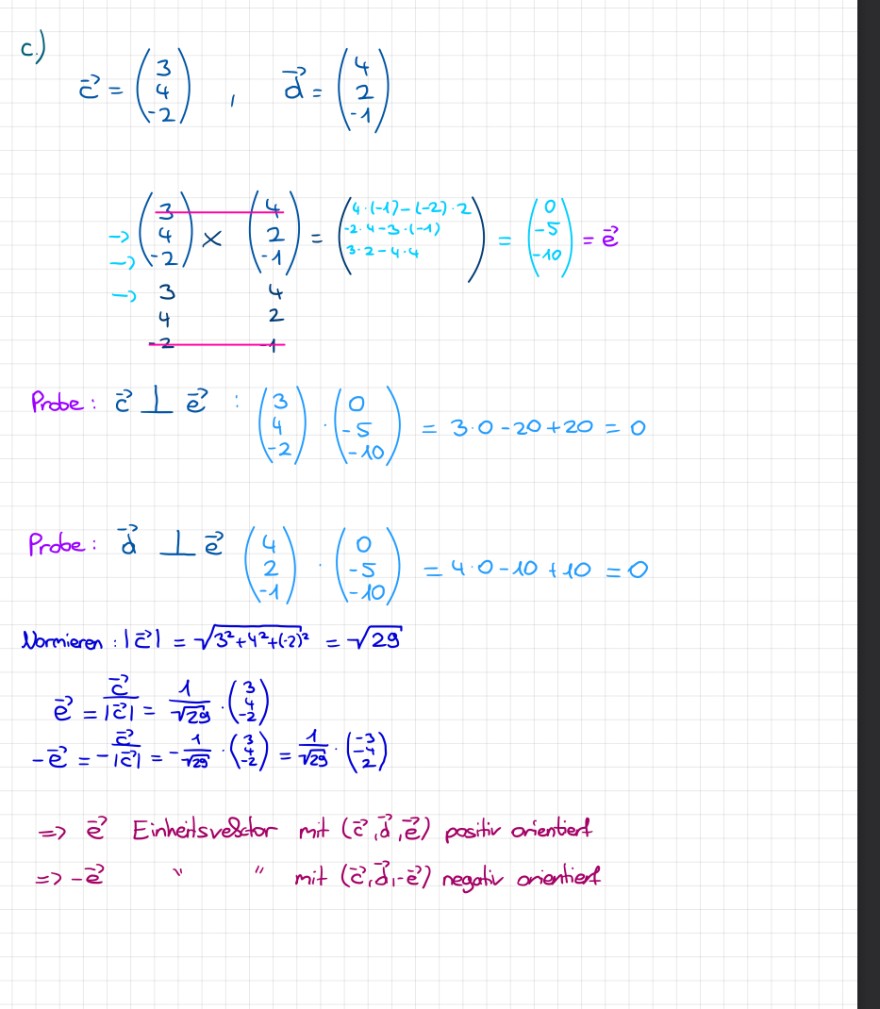 c.)
c⃗ = (3 4 -2) , d⃗ = (4 2 -1)
-> -> (3 4 -2) × (4 2 -1) = (4·(-1)-(-2)·2 -2·4-3·(-1) 3·2-4·4) = (0 -5 -10) = e⃗
-> 3 4
4 2
-2 -1
Probe: c⃗ ⊥ e⃗ : (3 4 -2) · (0 -5 -10) = 3·0-20+20 = 0
Probe: d⃗ ⊥ e⃗ (4 2 -1) · (0 -5 -10) = 4·0-10+10 = 0
Normieren: |c⃗| = √3²+4²+(-2)² = √29
e⃗ = c⃗/|c⃗| = 1/√29 · (3 4 -2)
-e⃗ = -c⃗/|c⃗| = -1/√29 · (3 4 -2) = 1/√29 · (-3 -4 2)
=> e⃗ Einheitsvektor mit (c⃗,d⃗,e⃗) positiv orientiert
=> -e⃗ " " mit (c⃗,d⃗,-e⃗) negativ orientiert